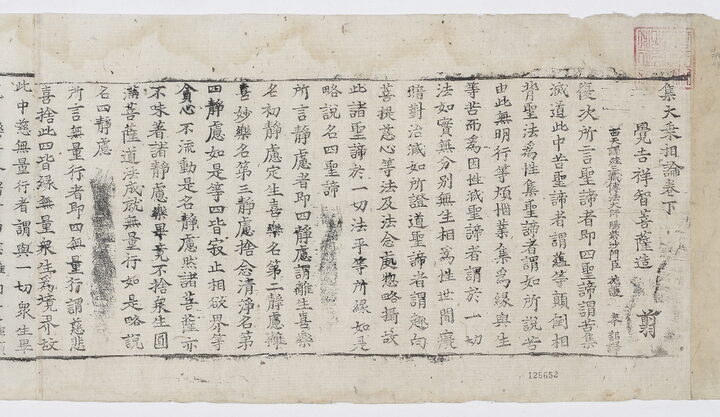 集大乘相論卷下
覺吉祥智菩薩造
剪
西天譯經三藏傳法大師賜紫沙門臣施護奉詔譯
復次所言聖諦者即四聖諦謂苦集
滅道此中苦聖諦者謂蘊等顛倒相
背聖法為性集聖諦者謂如所說苦
由此無明行等煩惱業集為緣與生
等苦而為因性滅聖諦者謂於一切
法如實無分別無生相為性世間癡
暗對治滅如所證道聖諦者謂趣向
菩提慈心等法及法念處惣略攝故
此諸聖諦於一切法平等所緣如是
略說名四聖諦
所言靜慮者即四靜慮謂離生喜樂
名初靜慮定生喜樂名第二靜慮離
喜妙樂名第三靜慮捨念清淨名第
四靜慮如是等四皆寂止相欲界等
貪心不流動是名靜慮然諸菩薩亦
不味著諸靜慮樂畢竟不捨衆生圓
滿菩薩道法成就無量行如是略說
名四靜慮
所言無量行者即四無量行謂慈悲
喜捨此四皆緣無量衆生為境界故
此中慈無量行者謂與一切衆生畢
126652